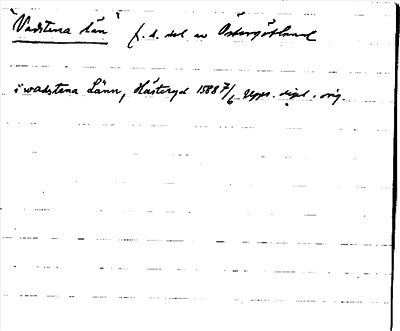 "Vadstena län" f. d. del av Östergötland
i wadstena Länn, Hästeryd 1588 7/6 Upps. dipl. orig.